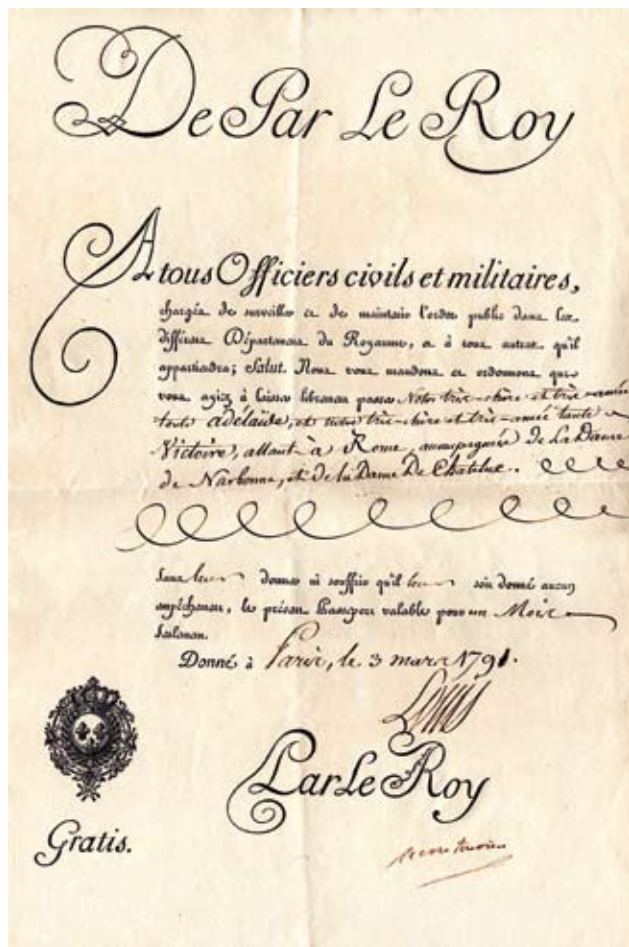 De Par Le Roy
A tous Officiers civils et militaires,
chargés de surveiller et de maintenir l'ordre public dans les
différens Départemens du Royaume, et à tous autres qu'il
appartiendra; Salut. Nous vous mandons et ordonnons que
vous ayiez à laisser librement passer Notre très-chère et très-amée
tante adélaïde, et notre très-chère et très-amée tante
Victoire, allant à Rome, accompagnées de La Dame
de Narbonne, et de la Dame De Chatelux.
Sans leur donner ni souffrir qu'il leur soit donné aucun
empêchement, le présent Passeport valable pour un Mois
Seulement.
Donné à Paris, le 3 mars 1791.
Louis
Par Le Roy
Gratis.